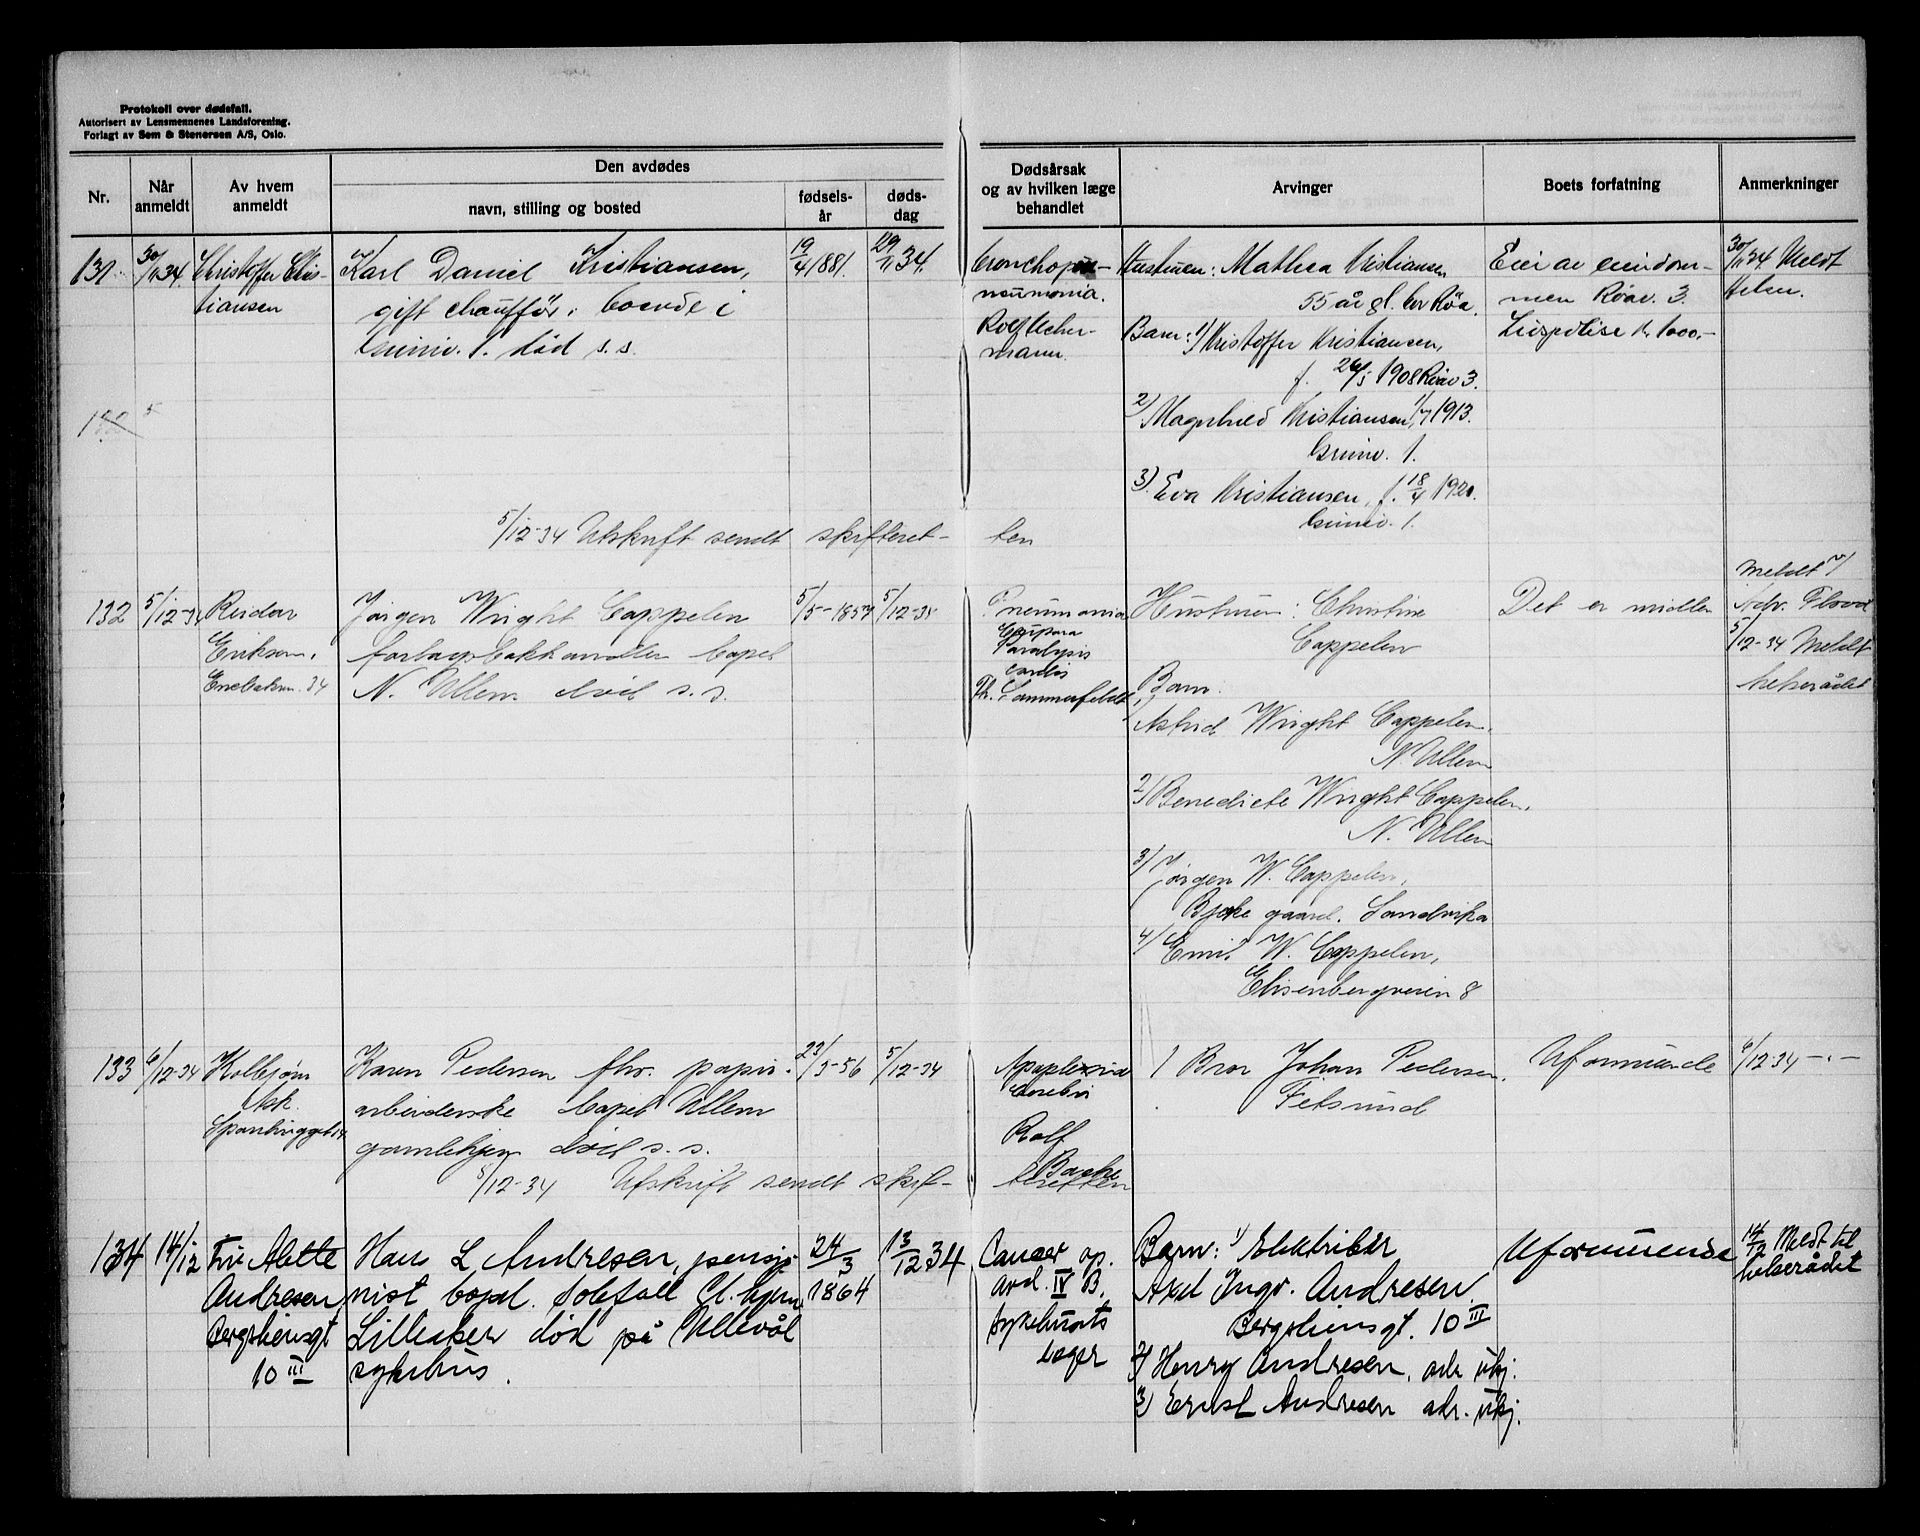 Protokoll over dødsfall.
Autorisert av Lensmennenes Landsforening.
Forlagt av Sem & Stenersen A/S, Oslo.
Nr.
Når anmeldt
Av hvem anmeldt
Den avdødes
navn, stilling og bosted
fødsels-år
døds-dag
Dødsårsak og av hvilken læge behandlet
Arvinger
Boets forfatning
Anmerkninger
131.
30/11 34.
Christoffer Chris-
tiansen
Karl Daniel Kristiansen,
gift chauffør, boende i
Griniv. 1. død s.s.
19/4 1881.
29/11 34.
Bronchopn-
neumonia.
Rolf
mann.
Hustruen: Mathea Kristiansen
55 år gl. bor Röa.
Barn: 1) Kristoffer Kristiansen,
f. 26/5 1908 Röav 3.
2) Magnhild Kristiansen, 1/7 1913.
Griniv. 1.
3) Eva Kristiansen, f. 18/4 1920.
Griniv. 1.
Eier av eiendom-
men Röav. 3.
Livspolise kr. 1000.-
30/11 34 Meldt
helser.
5/12-34 Utskrift sendt skifteret-
ten
132
5/12-34
Reidar
Eriksen,
Enebakv. 34
Jørgen Wright Cappelen
forlagsbokhandler bopel
N. Ullern død s.s.
5/5-1857
5/12-34
Pneumonia
Crupøsa
Paralysis
cordis
Th. Sommerfeldt
Hustruen: Christine
Cappelen
Barn.
1/
Astrid Wright Cappelen,
N. Ullern
2/ Benedicte Wright Cappelen,
N. Ullern
3/ Jørgen W. Cappelen,
Bjerke gaard. Sandvika
4/ Emil W. Cappelen,
Elisenbergveien 8
Det er midler
Meldt v/
Adv.
5/12-34 Meldt
helserådet
133
6/12-34
Kolbjørn
Ask.
Karen Pedersen fhv. papir-
arbeiderske bopel Ullern
gamlehjem død s.s.
23/3-56
5/12-34
Apoplexia
cerebri
Rolf
Backe
1 Bror Johan Pedersen,
Fetsund
Uformuende
6/12-34 -.-
8/12-34 Utskrift sendt skif-
teretten
134
14/12
Fru Alette
Andresen,
Bergsliensgt
10 III
Hans L. Andresen, pensjo-
nist bopl. Solefall Gl. hjem
Lilleaker død på Ullevål
sykehus.
24/3
1864
13/12 34
Cancer op.
avd. IV B.
sykehusets
læger
Barn: 1) Elektriker
Axel Ingv. Andresen
Bergsliensgt. 10 III
2) Henry Andresen, adr ukj.
3) Ernst Andresen adr. ukj.
Uformuende
14/12 Meldt til
helserådet